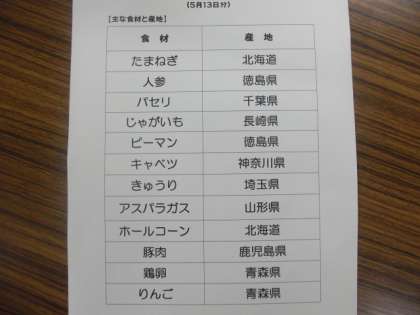 (5月13日分)
[主な食材と産地]
食材 産地
たまねぎ 北海道
人参 徳島県
パセリ 千葉県
じゃがいも 長崎県
ピーマン 徳島県
キャベツ 神奈川県
きゅうり 埼玉県
アスパラガス 山形県
ホールコーン 北海道
豚肉 鹿児島県
鶏卵 青森県
りんご 青森県